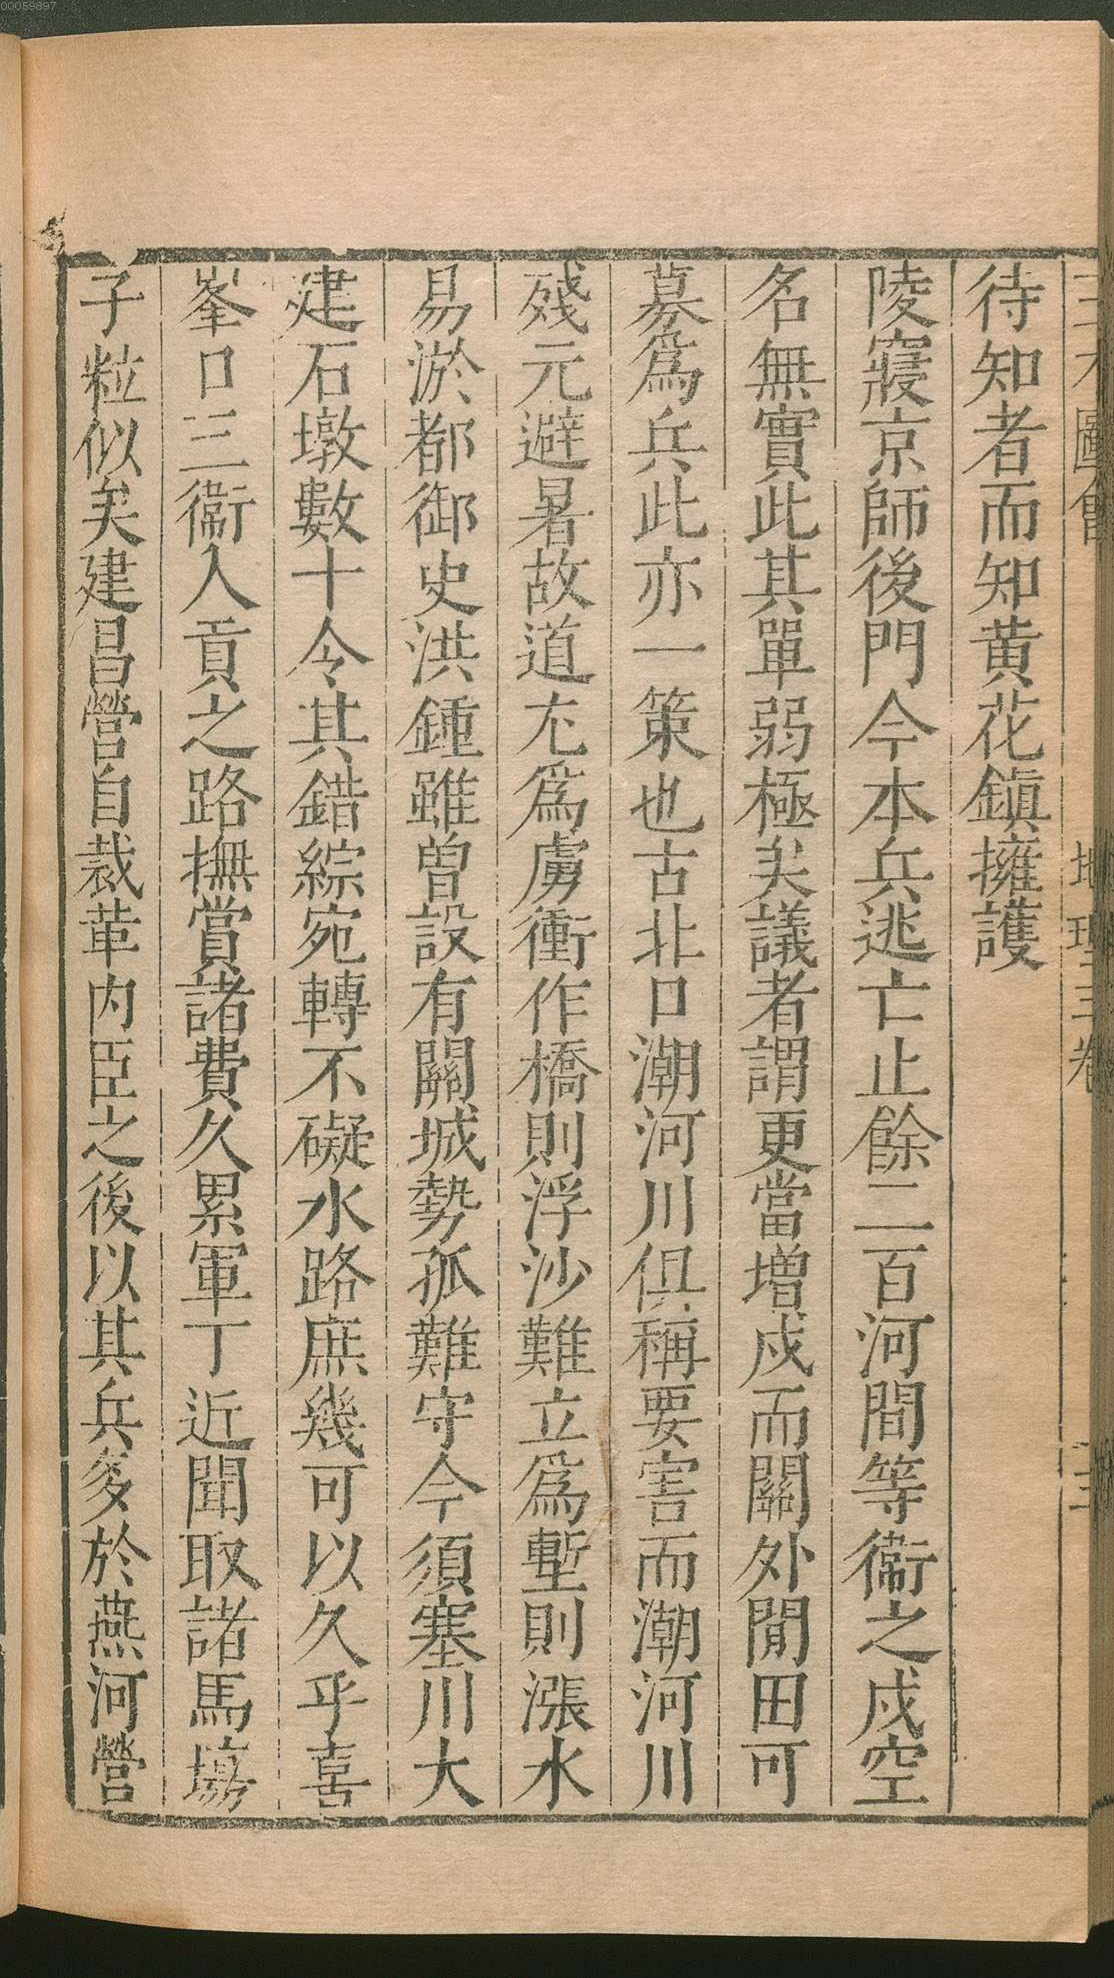 待知者而知黄花鎮擁護
陵寢京師後門今本兵逃亡止餘二百河間等衞之戍空
名無實此其單弱極矣議者謂更當增戍而關外閒田可
募爲兵此亦一策也古北口潮河川俱稱要害而潮河川
殘元避暑故道尤爲虜衝作橋則浮沙難立爲塹則漲水
易淤都御史洪鍾雖曾設有關城勢孤難守今須塞川大
建石墩數十令其錯綜宛轉不礙水路庶幾可以久乎喜
峯口三衞入貢之路撫賞諸費久累軍丁近聞取諸馬塲
子粒似矣建昌營自裁革内臣之後以其兵多於燕河營
三才圖會
地理三卷
00059897